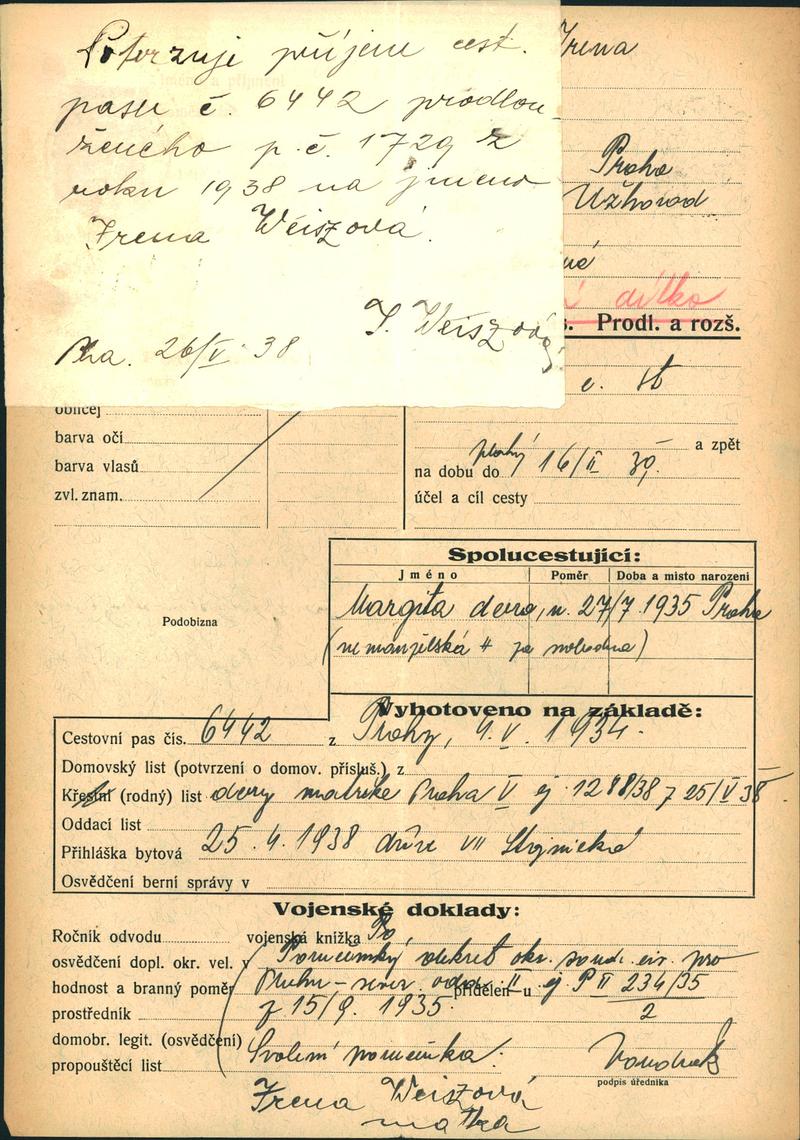 Potvrzuji příjem cest.
pasu č. 6442 prodlou-
ženého p. č. 1729 z
roku 1938 na jmeno
Irena Weiszová.
I. Weiszová
Pha. 26/V 38
Irena
Praha
Užhorod
dítko
Prodl. a rozš.
obličej
barva očí
barva vlasů
zvl. znam.
a zpět
na dobu do 16/II 39.
účel a cíl cesty
Spolucestující:
Jméno Poměr Doba a místo narození
Margita dcera, n. 27/7. 1935 Praha
(nemanželská
Podobizna
Vyhotoveno na základě:
Cestovní pas čís. 6442 z Prahy, 4. V. 1934.
Domovský list (potvrzení o domov. přísluš.) z
Křestní (rodný) list dcery matrike Praha V čj. 1288/38 z 25/V 38
Oddací list
Přihláška bytová 25. 4. 1938 dříve VII Strojnická
Osvědčení berní správy v
Vojenské doklady:
Ročník odvodu vojenská knížka
osvědčení dopl. okr. vel. v Poručenský dekret okr. soudu civ. pro
hodnost a branný poměr Prahu - sever odd. II přidělen u čj P II 234/35
2
prostředník z 15/9. 1935.
domobr. legit. (osvědčení)
propouštěcí list Svolení poručníka.
podpis úředníka
Irena Weiszová
matka